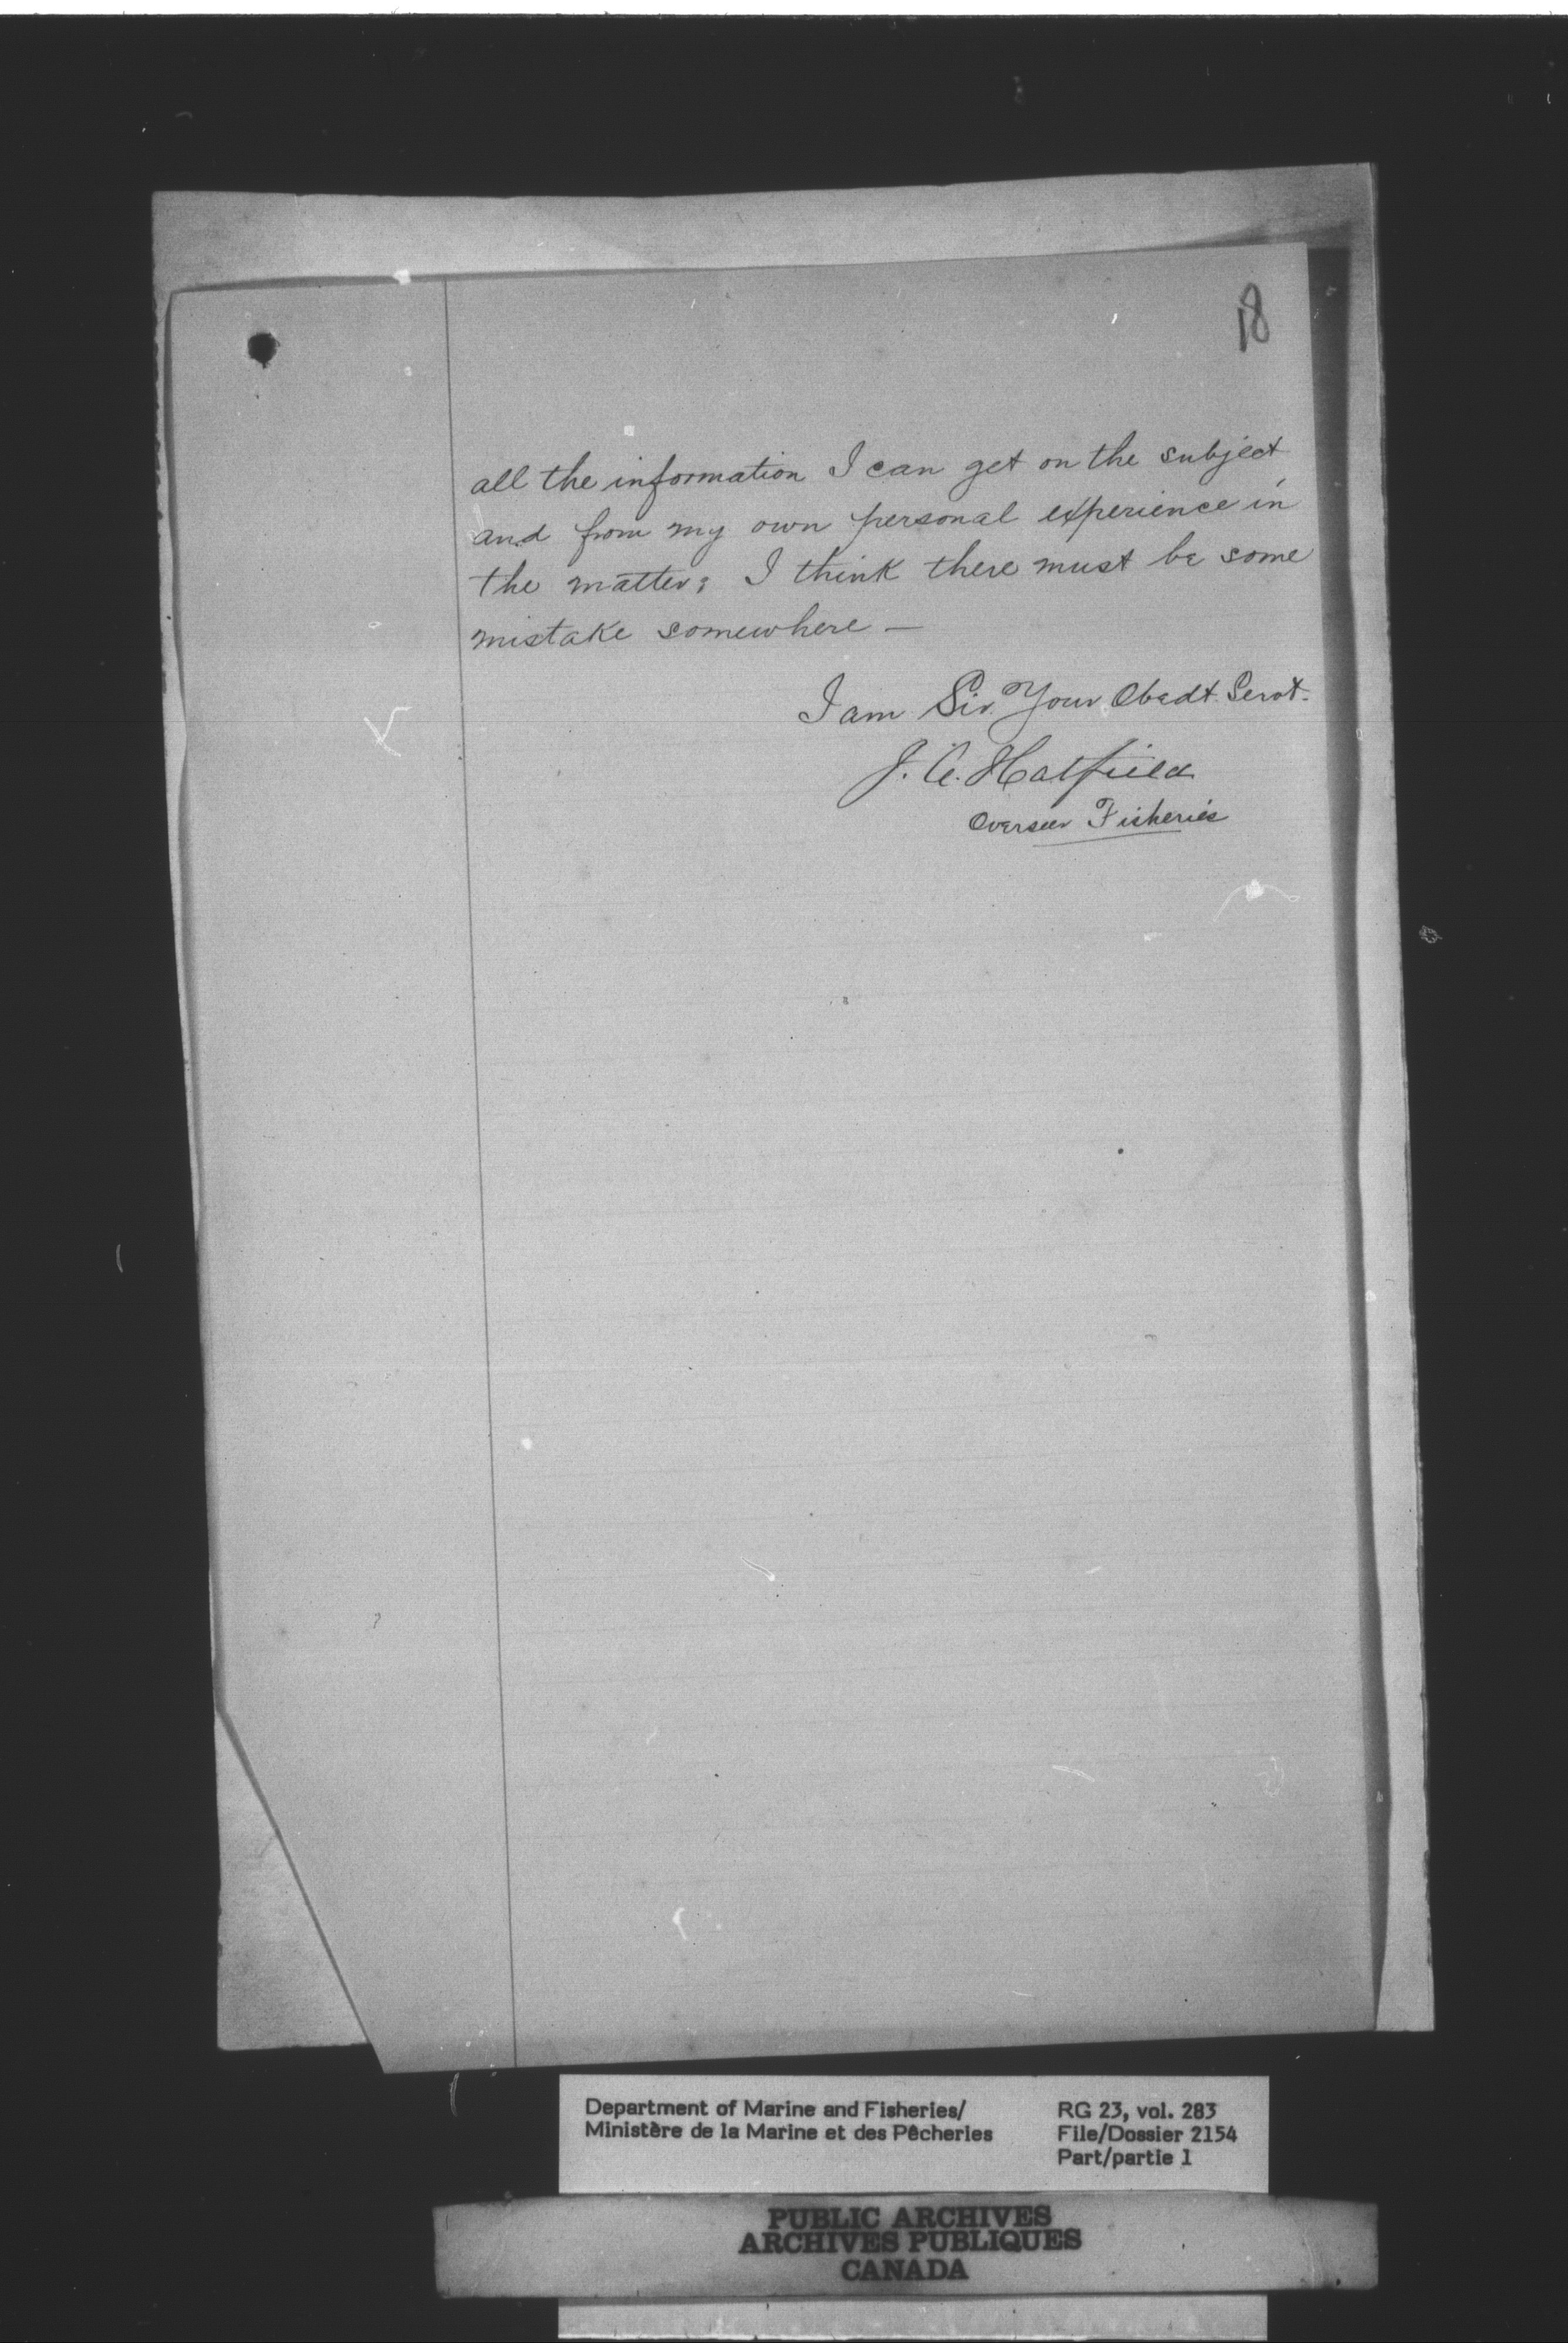 18
all the information I can get on the subject
and from my own personal experience in
the matter; I think there must be some
mistake somewhere —
I am Sir Your Obedt. Servt.
J. A. Hatfield
Overseer Fisheries
Department of Marine and Fisheries/
Ministère de la Marine et des Pêcheries
RG 23, vol. 283
File/Dossier 2154
Part/partie 1
PUBLIC ARCHIVES
ARCHIVES PUBLIQUES
CANADA